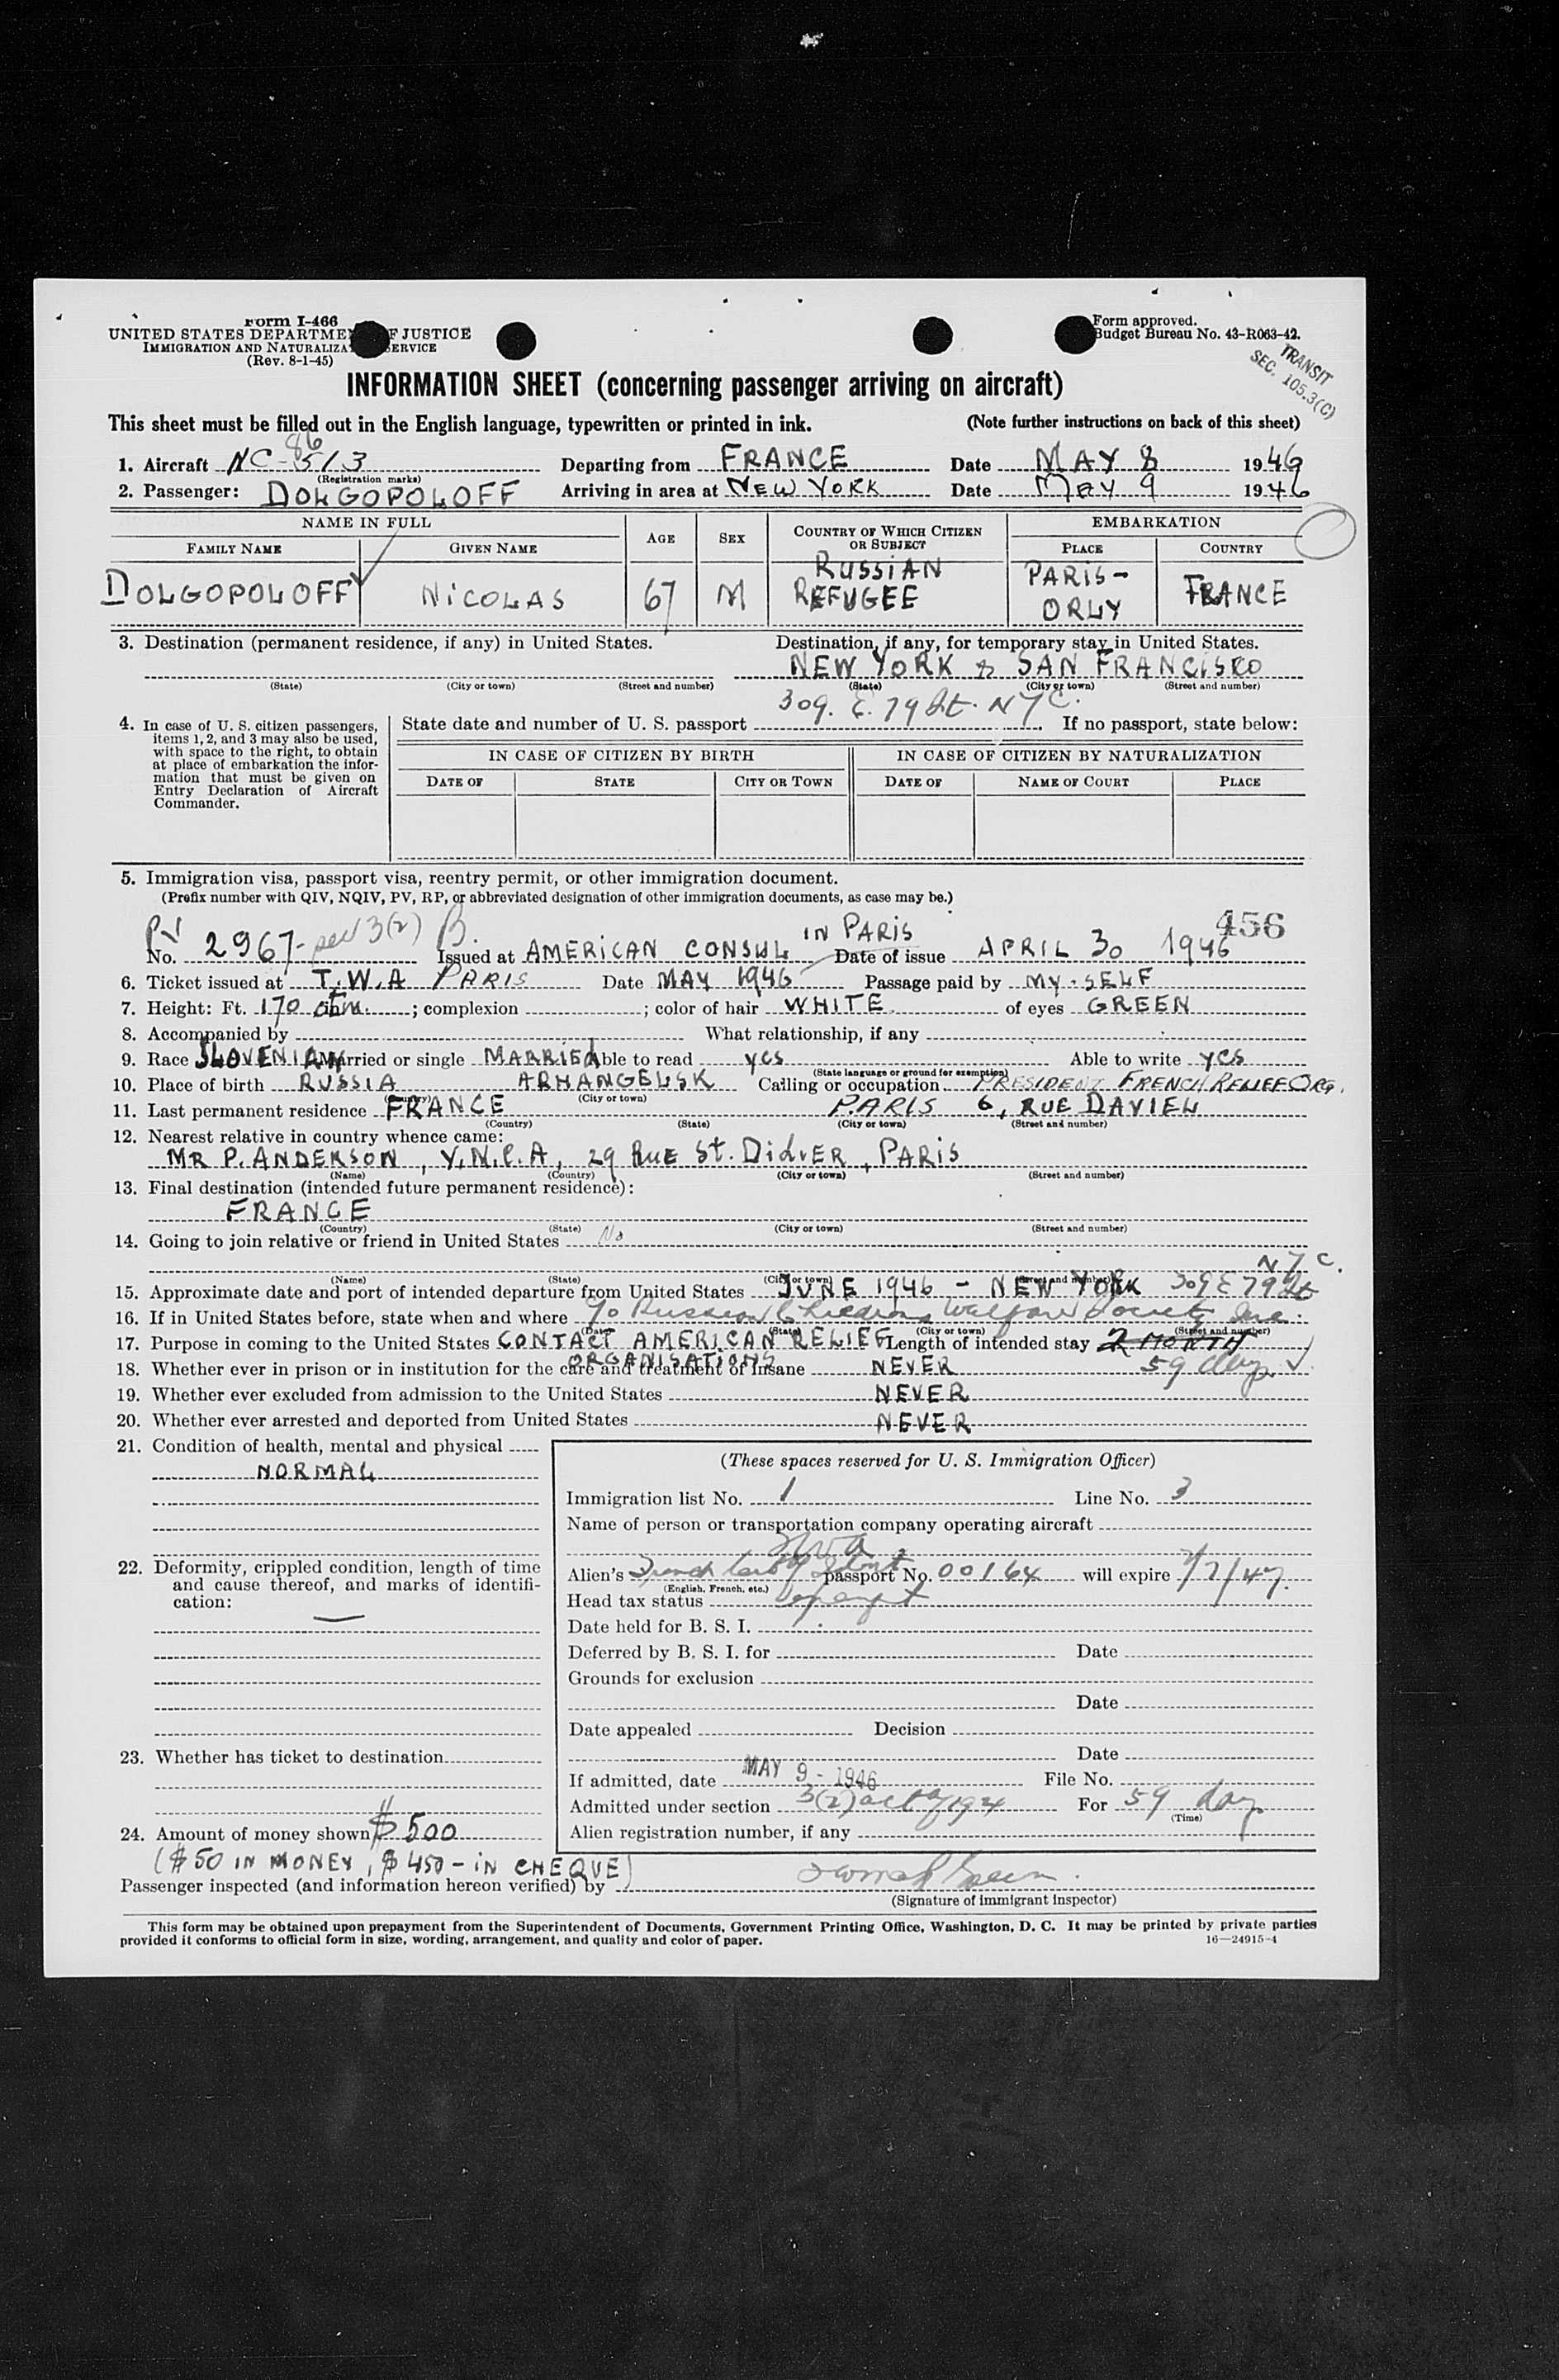 Form I-466
UNITED STATES DEPARTMENT OF JUSTICE
IMMIGRATION AND NATURALIZATION SERVICE
(Rev. 8-1-45)
Form approved.
Budget Bureau No. 43-R063-42.
TRANSIT
SEC. 105.3(C)
INFORMATION SHEET (concerning passenger arriving on aircraft)
This sheet must be filled out in the English language, typewritten or printed in ink. (Note further instructions on back of this sheet)
86
1. Aircraft NC-513 Departing from FRANCE Date MAY 8 1946
(Registration marks)
2. Passenger: DOLGOPOLOFF Arriving in area at NEW YORK Date MAY 9 1946
NAME IN FULL AGE SEX COUNTRY OF WHICH CITIZEN OR SUBJECT EMBARKATION
FAMILY NAME GIVEN NAME PLACE COUNTRY
DOLGOPOLOFF NICOLAS 67 M RUSSIAN REFUGEE PARIS-ORLY FRANCE
3. Destination (permanent residence, if any) in United States. Destination, if any, for temporary stay in United States.
NEW YORK & SAN FRANCISCO
(State) (City or town) (Street and number) (State) (City or town) (Street and number)
309. E. 79 St. NYC.
4. In case of U. S. citizen passengers, items 1, 2, and 3 may also be used, with space to the right, to obtain at place of embarkation the information that must be given on Entry Declaration of Aircraft Commander.
State date and number of U. S. passport If no passport, state below:
IN CASE OF CITIZEN BY BIRTH IN CASE OF CITIZEN BY NATURALIZATION
DATE OF STATE CITY OR TOWN DATE OF NAME OF COURT PLACE
5. Immigration visa, passport visa, reentry permit, or other immigration document.
(Prefix number with QIV, NQIV, PV, RP, or abbreviated designation of other immigration documents, as case may be.)
456
PV
No. 2967 - sec 3(2) B. Issued at AMERICAN CONSUL IN PARIS Date of issue APRIL 30 1946
6. Ticket issued at T.W.A PARIS Date MAY 1946 Passage paid by MY-SELF
7. Height: Ft. 170 ctm. ; complexion ; color of hair WHITE of eyes GREEN
8. Accompanied by What relationship, if any
9. Race SLOVENIAN Married or single MARRIED Able to read yes Able to write yes
(State language or ground for exemption)
10. Place of birth RUSSIA ARHANGELSK Calling or occupation PRESIDENT FRENCH RELIEF ORG.
(Country) (City or town)
11. Last permanent residence FRANCE PARIS 6, RUE DAVIEL
(Country) (State) (City or town) (Street and number)
12. Nearest relative in country whence came:
MR P. ANDERSON, Y.M.C.A, 29 RUE St. DidiER, PARIS
(Name) (Country) (City or town) (Street and number)
13. Final destination (intended future permanent residence):
FRANCE
(Country) (State) (City or town) (Street and number)
14. Going to join relative or friend in United States No
N Y C.
(Name) (State) (City or town) (Street and number)
15. Approximate date and port of intended departure from United States JUNE 1946 - NEW YORK 309 E 79 St
16. If in United States before, state when and where c/o Russian Childrens Welfare Society Inc.
(Date) (State) (City or town) (Street and number)
17. Purpose in coming to the United States CONTACT AMERICAN RELIEF ORGANISATIONS Length of intended stay 2 MONTH
59 days
18. Whether ever in prison or in institution for the care and treatment of insane NEVER
19. Whether ever excluded from admission to the United States NEVER
20. Whether ever arrested and deported from United States NEVER
21. Condition of health, mental and physical
NORMAL
22. Deformity, crippled condition, length of time and cause thereof, and marks of identification:
—
23. Whether has ticket to destination
24. Amount of money shown $ 500
($50 IN MONEY, $450 - IN CHEQUE)
(These spaces reserved for U. S. Immigration Officer)
Immigration list No. 1 Line No. 3
Name of person or transportation company operating aircraft
TWA
Alien's French passport No. 00164 will expire 7/47
(English, French, etc.)
Head tax status exempt
Date held for B. S. I.
Deferred by B. S. I. for Date
Grounds for exclusion
Date
Date appealed Decision
Date
If admitted, date MAY 9 - 1946 File No.
Admitted under section 3(2) act of 1924 For 59 days
(Time)
Alien registration number, if any
Passenger inspected (and information hereon verified) by
(Signature of immigrant inspector)
This form may be obtained upon prepayment from the Superintendent of Documents, Government Printing Office, Washington, D. C. It may be printed by private parties
provided it conforms to official form in size, wording, arrangement, and quality and color of paper. 16—24915-4